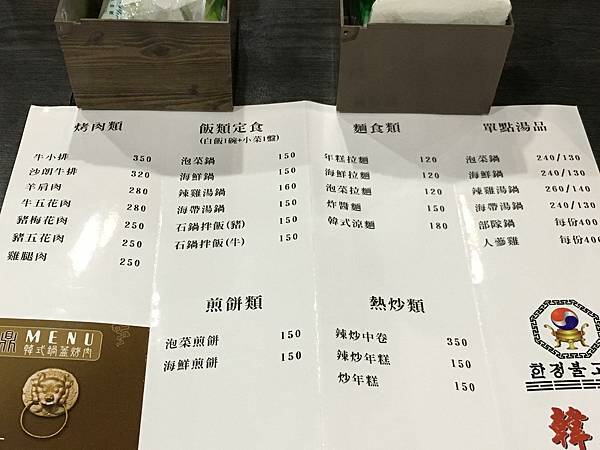 烤肉類
牛小排 350
沙朗牛排 320
羊肩肉 280
牛五花肉 280
豬梅花肉 250
豬五花肉 250
雞腿肉 250
飯類定食
(白飯1碗+小菜1盤)
泡菜鍋 150
海鮮鍋 150
辣雞湯鍋 160
海帶湯鍋 150
石鍋拌飯(豬) 150
石鍋拌飯(牛) 150
麵食類
年糕拉麵 120
海鮮拉麵 120
泡菜拉麵 120
炸醬麵 150
韓式涼麵 180
單點湯品
泡菜鍋 240/130
海鮮鍋 240/130
辣雞湯鍋 260/140
海帶湯鍋 240/130
部隊鍋 每份400
人蔘雞 每份400
煎餅類
泡菜煎餅 150
海鮮煎餅 150
熱炒類
辣炒中卷 350
辣炒年糕 150
炒年糕 150
鼎 MENU
韓式鍋蓋烤肉
한정불고
韓